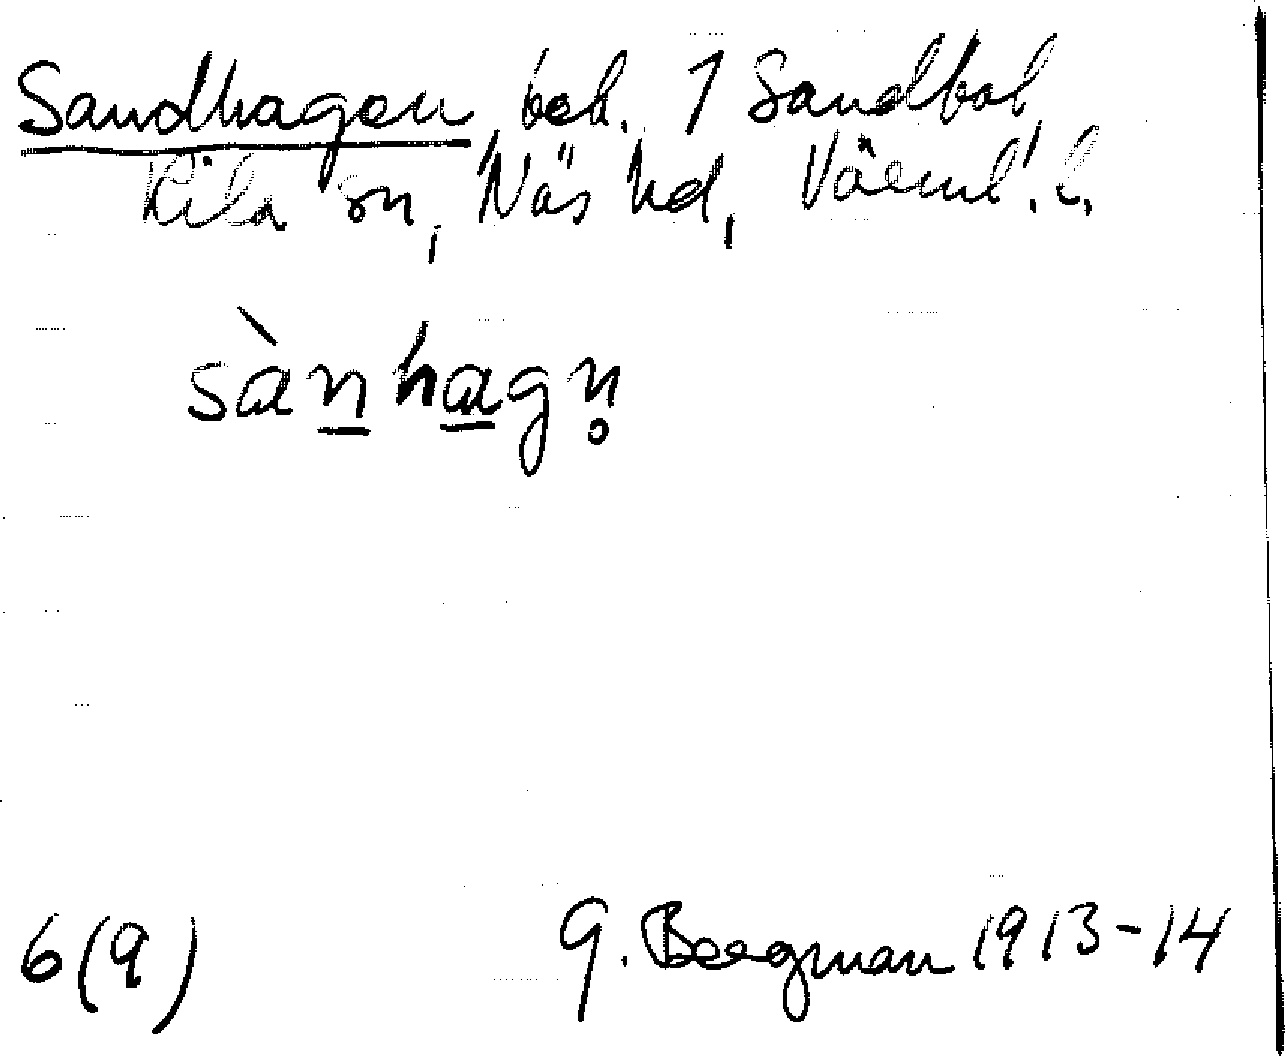 Sandhagen, beb. 1 Sandbol,
Kila sn, Näs hd, Värml. l.
sànhagn̥
6(9) G. Bergman 1913-14